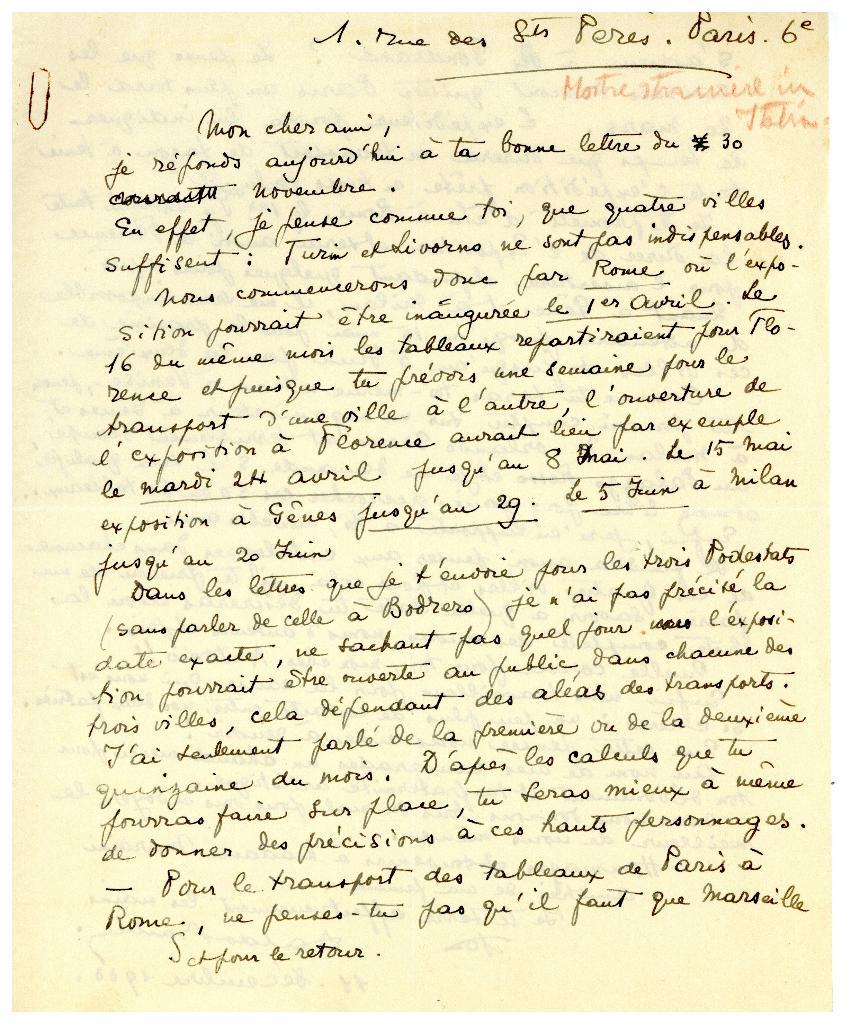 1. rue des Sts Peres. Paris. 6e
Mostre straniere in
Mon cher ami,
je réponds aujourd'hui à ta bonne lettre du 30
novembre.
En effet, je pense comme toi, que quatre villes
suffisent : Turin et Livorno ne sont pas indispensables.
Nous commencerons donc par Rome où l'expo-
sition pourrait être inaugurée le 1er Avril. Le
16 du même mois les tableaux repartiraient pour Flo-
rence et puisque tu prévois une semaine pour le
transport d'une ville à l'autre, l'ouverture de
l'exposition à Florence aurait lieu par exemple
le mardi 24 avril jusqu'au 8 Mai. Le 15 Mai
exposition à Gênes jusqu'au 29. Le 5 Juin à Milan
jusqu'au 20 Juin
Dans les lettres que je t'envoie pour les trois Podestats
(sans parler de celle à Bodrero) je n'ai pas précisé la
date exacte, ne sachant pas quel jour l'exposi-
tion pourrait être ouverte au public dans chacune des
trois villes, cela dépendant des aléas des transports.
J'ai seulement parlé de la première ou de la deuxième
quinzaine du mois. D'après les calculs que tu
pourras faire sur place, tu seras mieux à même
de donner des précisions à ces hauts personnages.
— Pour le transport des tableaux de Paris à
Rome, ne penses-tu pas qu'il faut que Marseille
et pour le retour.